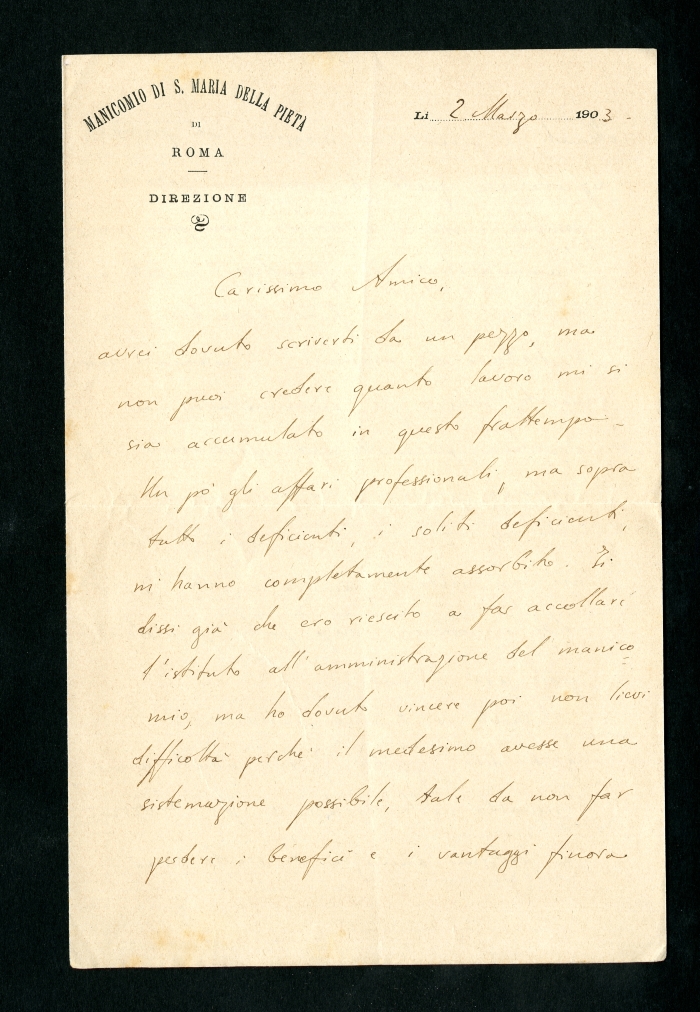 MANICOMIO DI S. MARIA DELLA PIETÀ
DI
ROMA
DIREZIONE
Li 2 Marzo 1903.
Carissimo Amico,
avrei dovuto scriverti da un pezzo, ma
non puoi credere quanto lavoro mi si
sia accumulato in questo frattempo.
Un pò gli affari professionali, ma sopra
tutto i deficienti, i soliti deficienti,
mi hanno completamente assorbito. Ti
dissi già che ero riescito a far accollare
l'istituto all'amministrazione del manico
mio, ma ho dovuto vincere poi non lievi
difficoltà perchè il medesimo avesse una
sistemazione possibile, tale da non far
perdere i beneficî e i vantaggi finora